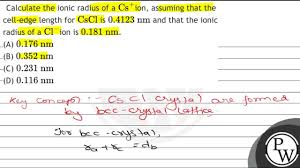 Calculate the ionic radius of a Cs⁺ ion, assuming that the
cell-edge length for CsCl is 0.4123 nm and that the ionic
radius of a Cl⁻ ion is 0.181 nm.
(A) 0.176 nm
(B) 0.352 nm
(C) 0.231 nm
(D) 0.116 nm
key concept :- CsCl crystal are formed
by bcc-crystal lattice
For bcc-crystal,